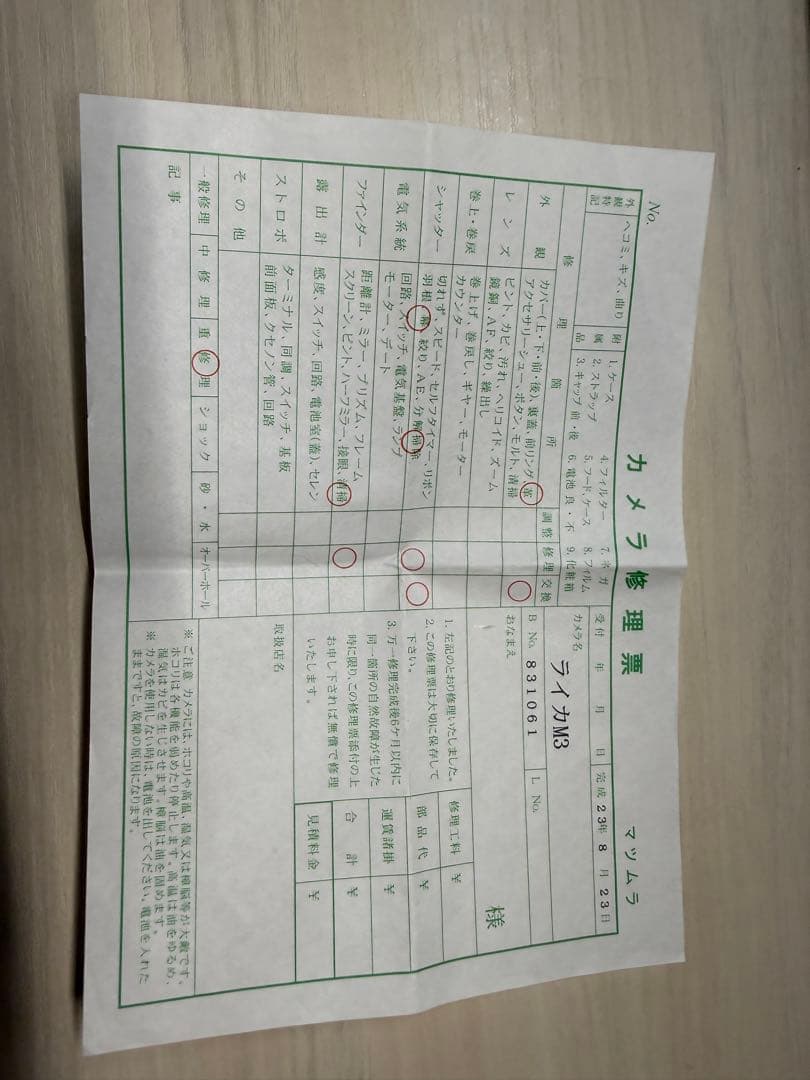 No.
カメラ修理票
マツムラ
外観特記
ヘコミ、キズ、曲り
附属品
1. ケース
2. ストラップ
3. キャップ 前・後
4. フィルター
5. フード、ケース
6. 電池 良・不
7. ネガ
8. フィルム
9. 化粧箱
修理箇所
調整
修理
交換
外観
カバー(上・下・前・後)、裏蓋、前リング、革
アクセサリーシュー、ボタン、モルト、清掃
レンズ
ピント、カビ、汚れ、ヘリコイド、ズーム
鏡銅、AF、絞り、繰出し
巻上・巻戻
巻上げ、巻戻し、ギヤー、モーター
カウンター
シャッター
切れず、スピード、セルフタイマー、リボン
羽根、幕、絞り、AE、分解掃除
電気系統
回路、スイッチ、電気基盤、ランプ
モーター、デート
ファインダー
距離計、ミラー、プリズム、フレーム
スクリーン、ピント、ハーフミラー、接眼、清掃
露出計
感度、スイッチ、回路、電池室(蓋)、セレン
ストロボ
ターミナル、同調、スイッチ、基板
前面板、クセノン管、回路
その他
一般修理
中修理
重修理
ショック
砂・水
オーバーホール
記事
受付 年 月 日
完成 23年 8月 23日
カメラ名
ライカM3
B No. 831061
L No.
おなまえ
様
1. 左記のとおり修理いたしました。
2. この修理票は大切に保存して
下さい。
3. 万一修理完成後6ケ月以内に
同一箇所の自然故障が生じた
時に限り、この修理票添付の上
お申し下されば無償で修理
いたします。
修理工料 ¥
部品代 ¥
運賃諸掛 ¥
合計 ¥
見積料金 ¥
取扱店名
※ ご注意 カメラには、ホコリや高温、湿気又は樟脳等が大敵です。
ホコリは各機能を弱めたり停止します。高温は油をゆるめ、
湿気はカビを生じさせます。樟脳は油を固めます。
※ カメラを使用しない時は、電池を出してください。電池を入れた
ままですと、故障の原因になります。